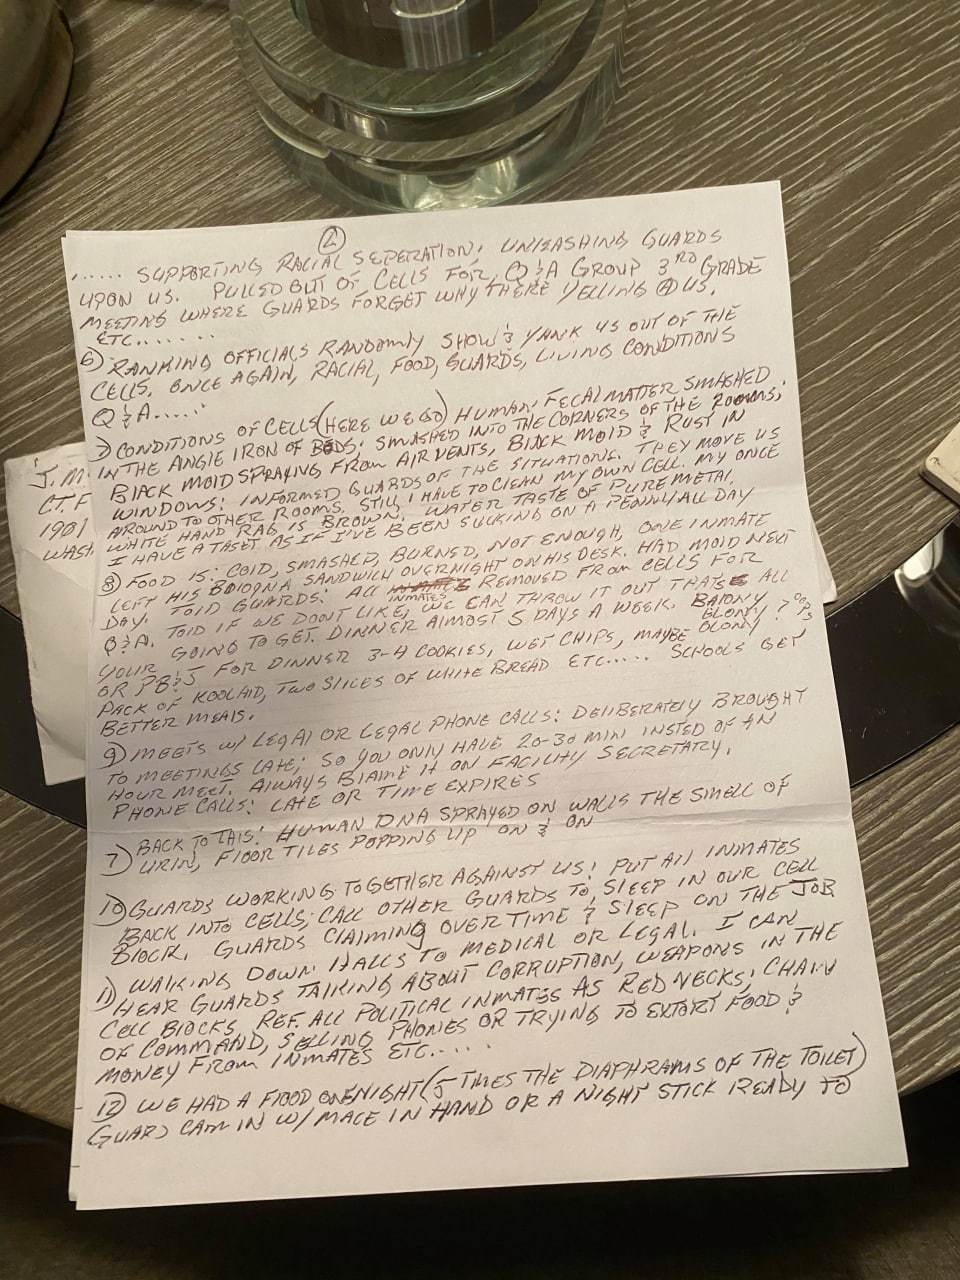 ④
...... SUPPORTING RACIAL SEPERATION. UNLEASHING GUARDS
UPON US. PULLED OUT OF CELLS FOR, Q & A GROUP 3RD GRADE
MEETING WHERE GUARDS FORGET WHY THERE YELLING @ US.
ETC.......
6) RANKING OFFICIALS RANDOMLY SHOW & YANK US OUT OF THE
CELLS. ONCE AGAIN, RACIAL, FOOD, GUARDS, LIVING CONDITIONS
Q & A.....
7) CONDITIONS OF CELLS (HERE WE GO) HUMAN, FECAL MATTER SMASHED
IN THE ANGLE IRON OF BEDS; SMASHED INTO THE CORNERS OF THE ROOMS;
BLACK MOLD SPRAYING FROM AIR VENTS, BLACK MOLD & RUST IN
WINDOWS; INFORMED GUARDS OF THE SITUATIONS. THEY MOVE US
AROUND TO OTHER ROOMS. STILL I HAVE TO CLEAN MY OWN CELL. MY ONCE
WHITE HAND RAG IS BROWN. WATER TASTE OF PURE METAL.
I HAVE A TASET AS IF I'VE BEEN SUCKING ON A PENNY ALL DAY
8) FOOD IS: COLD, SMASHED, BURNED, NOT ENOUGH, ONE INMATE
LEFT HIS BOLOGNA SANDWICH OVERNIGHT ON HIS DESK. HAD MOLD NEXT
DAY. TOLD GUARDS: ALL INMATES REMOVED FROM CELLS FOR
Q & A. TOLD IF WE DONT LIKE, WE CAN THROW IT OUT THATS ALL
YOUR GOING TO GET. DINNER ALMOST 5 DAYS A WEEK. BALONY BLONY BLONY ? OOPS
OR PB & J FOR DINNER 3-4 COOKIES, WET CHIPS, MAYBE
PACK OF KOOLAID, TWO SLICES OF WHITE BREAD ETC..... SCHOOLS GET
BETTER MEALS.
9) MEETS W/ LEGAL OR LEGAL PHONE CALLS: DELIBERATELY BROUGHT
TO MEETINGS LATE; SO YOU ONLY HAVE 20-30 MIN INSTED OF AN
HOUR MEET. ALWAYS BLAME IT ON FACILITY SECRETARY.
PHONE CALLS: LATE OR TIME EXPIRES
7) BACK TO THIS: HUMAN DNA SPRAYED ON WALLS THE SMELL OF
URIN, FLOOR TILES POPPING UP ON & ON
10) GUARDS WORKING TOGETHER AGAINST US: PUT ALL INMATES
BACK INTO CELLS; CALL OTHER GUARDS TO SLEEP IN OUR CELL
BLOCK. GUARDS CLAIMING OVERTIME & SLEEP ON THE JOB
11) WALKING DOWN HALLS TO MEDICAL OR LEGAL. I CAN
HEAR GUARDS TALKING ABOUT CORRUPTION, WEAPONS IN THE
CELL BLOCKS, REF. ALL POLITICAL INMATES AS RED NECKS, CHAIN
OF COMMAND, SELLING PHONES OR TRYING TO EXTORT FOOD &
MONEY FROM INMATES ETC.....
12) WE HAD A FLOOD ONENIGHT (5 TIMES THE DIAPHRAMS OF THE TOILET)
GUARD CAM IN W/ MACE IN HAND OR A NIGHT STICK READY TO
J. M.
CT. F
1901
WASH